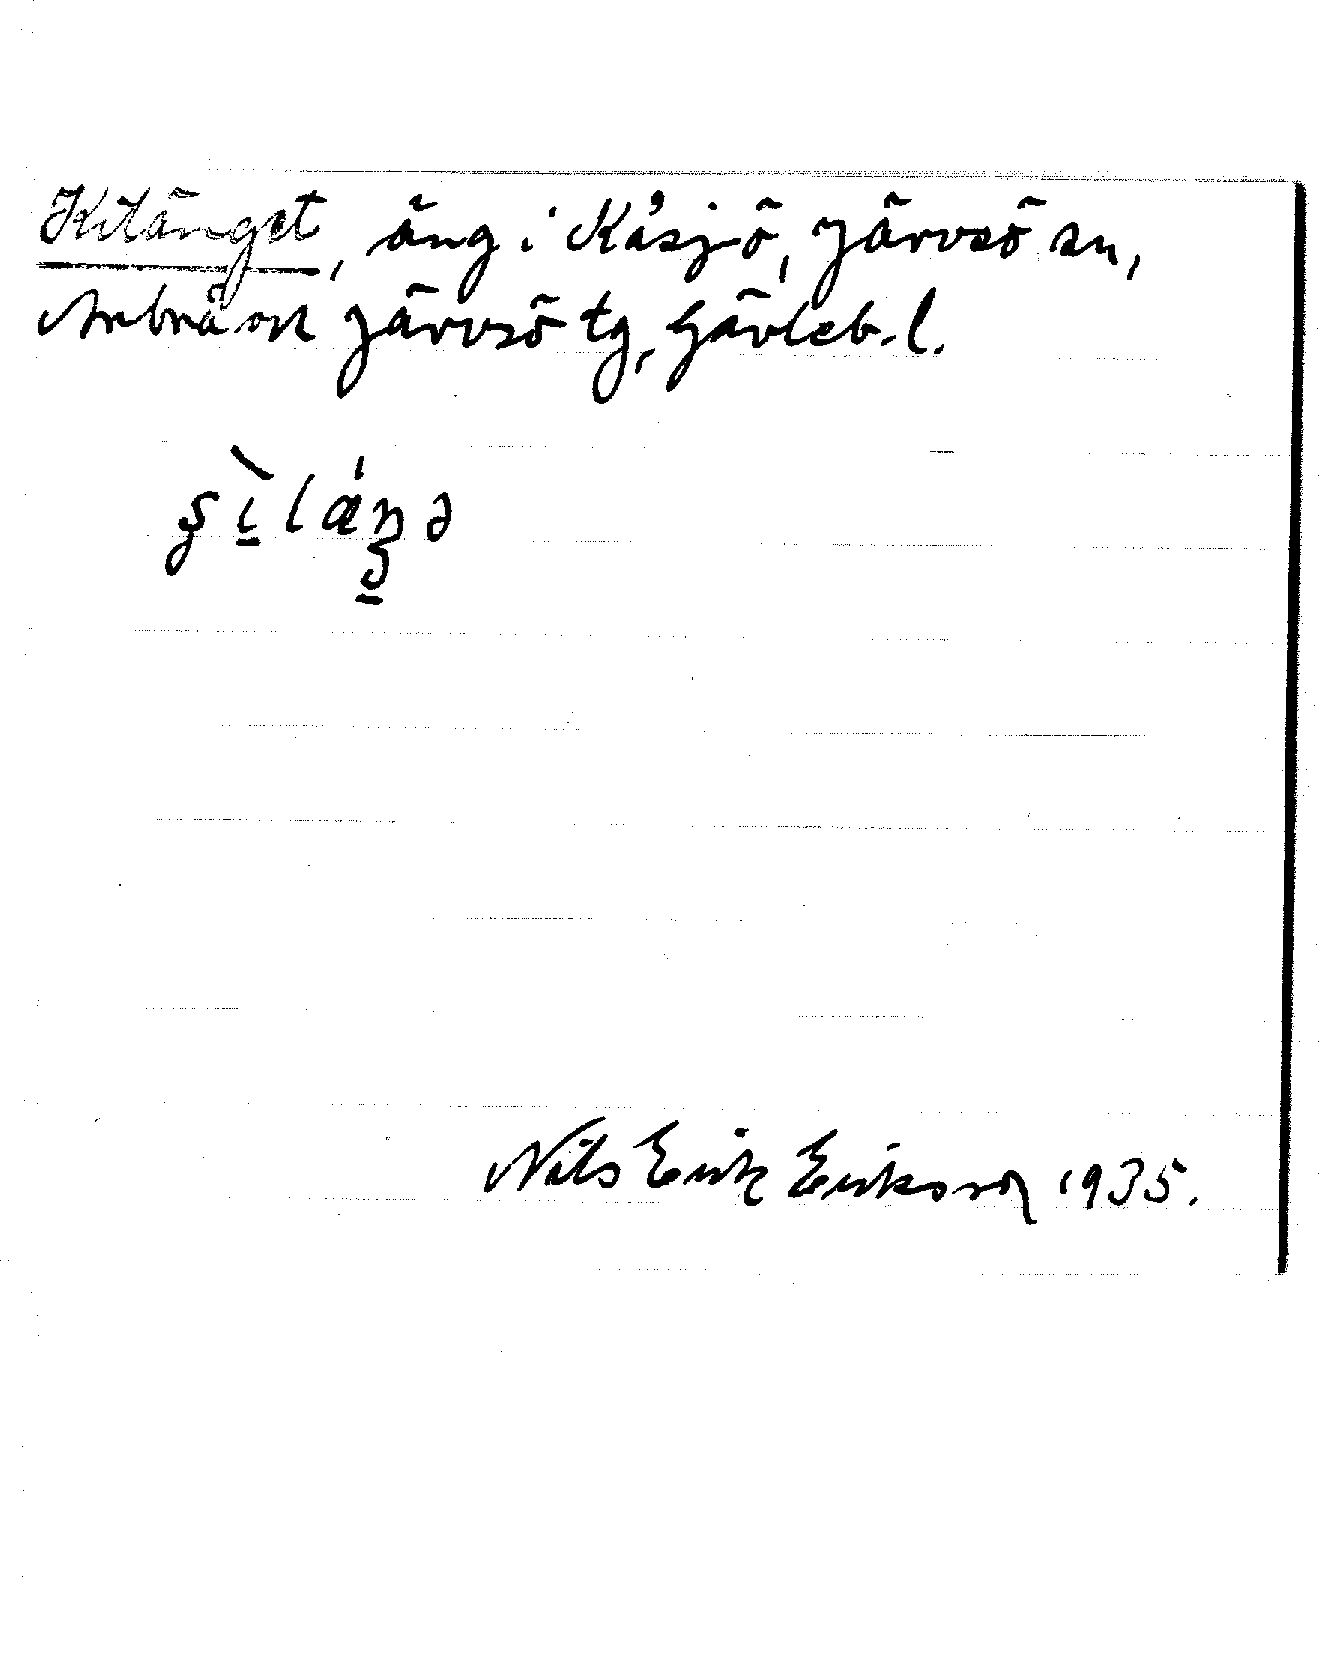 Kilänget, äng i Kåsjö, Järvsö sn,
Arbrå och Järvsö tg, Gävleb. l.
Nils Erik Eriksson 1935.